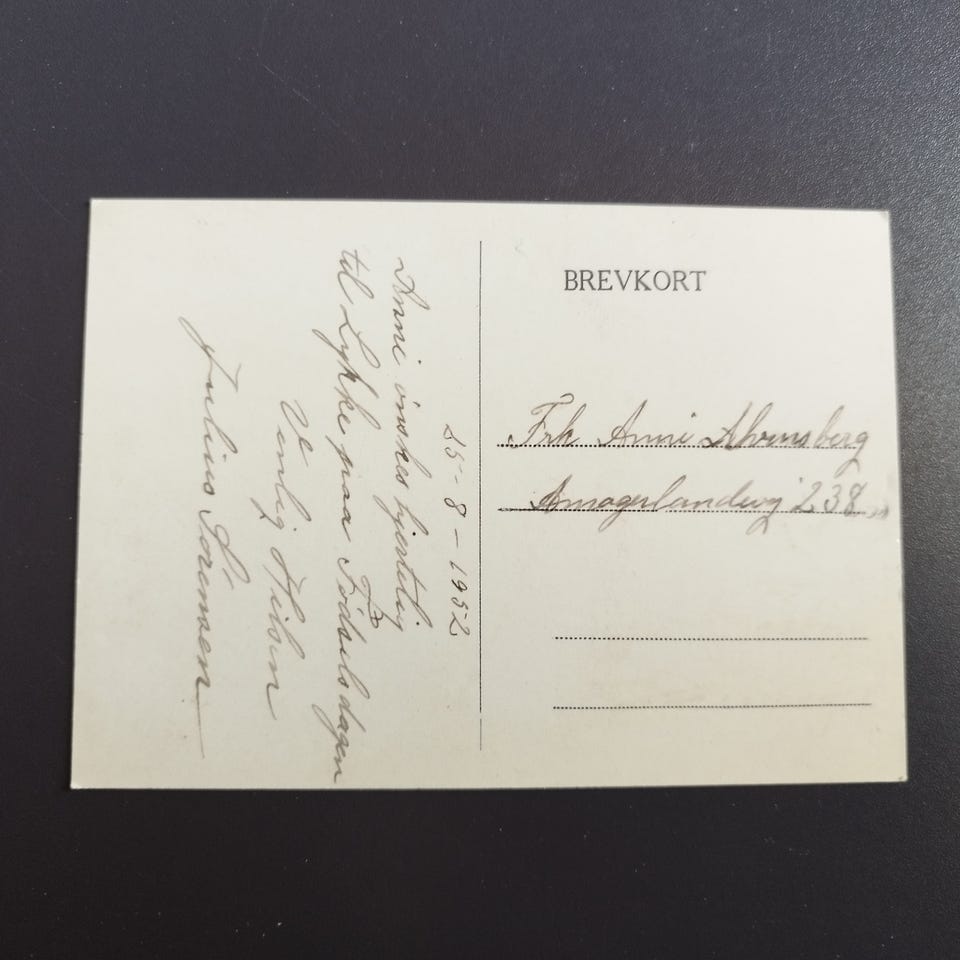 BREVKORT
Frk Anni
Amagerlandevej 238
25-8-1952
Anni önskes hjertelig
til Lykke paa Födselsdagen
Venlig Hilsen
Julius Sörensen